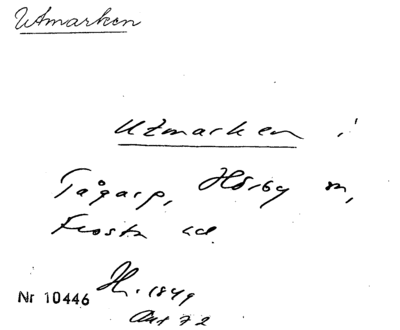 Utmarken
Utmarken i
Tågarp, Hörby sn,
Frosta hd.
Nr 10446 Hn. 1849